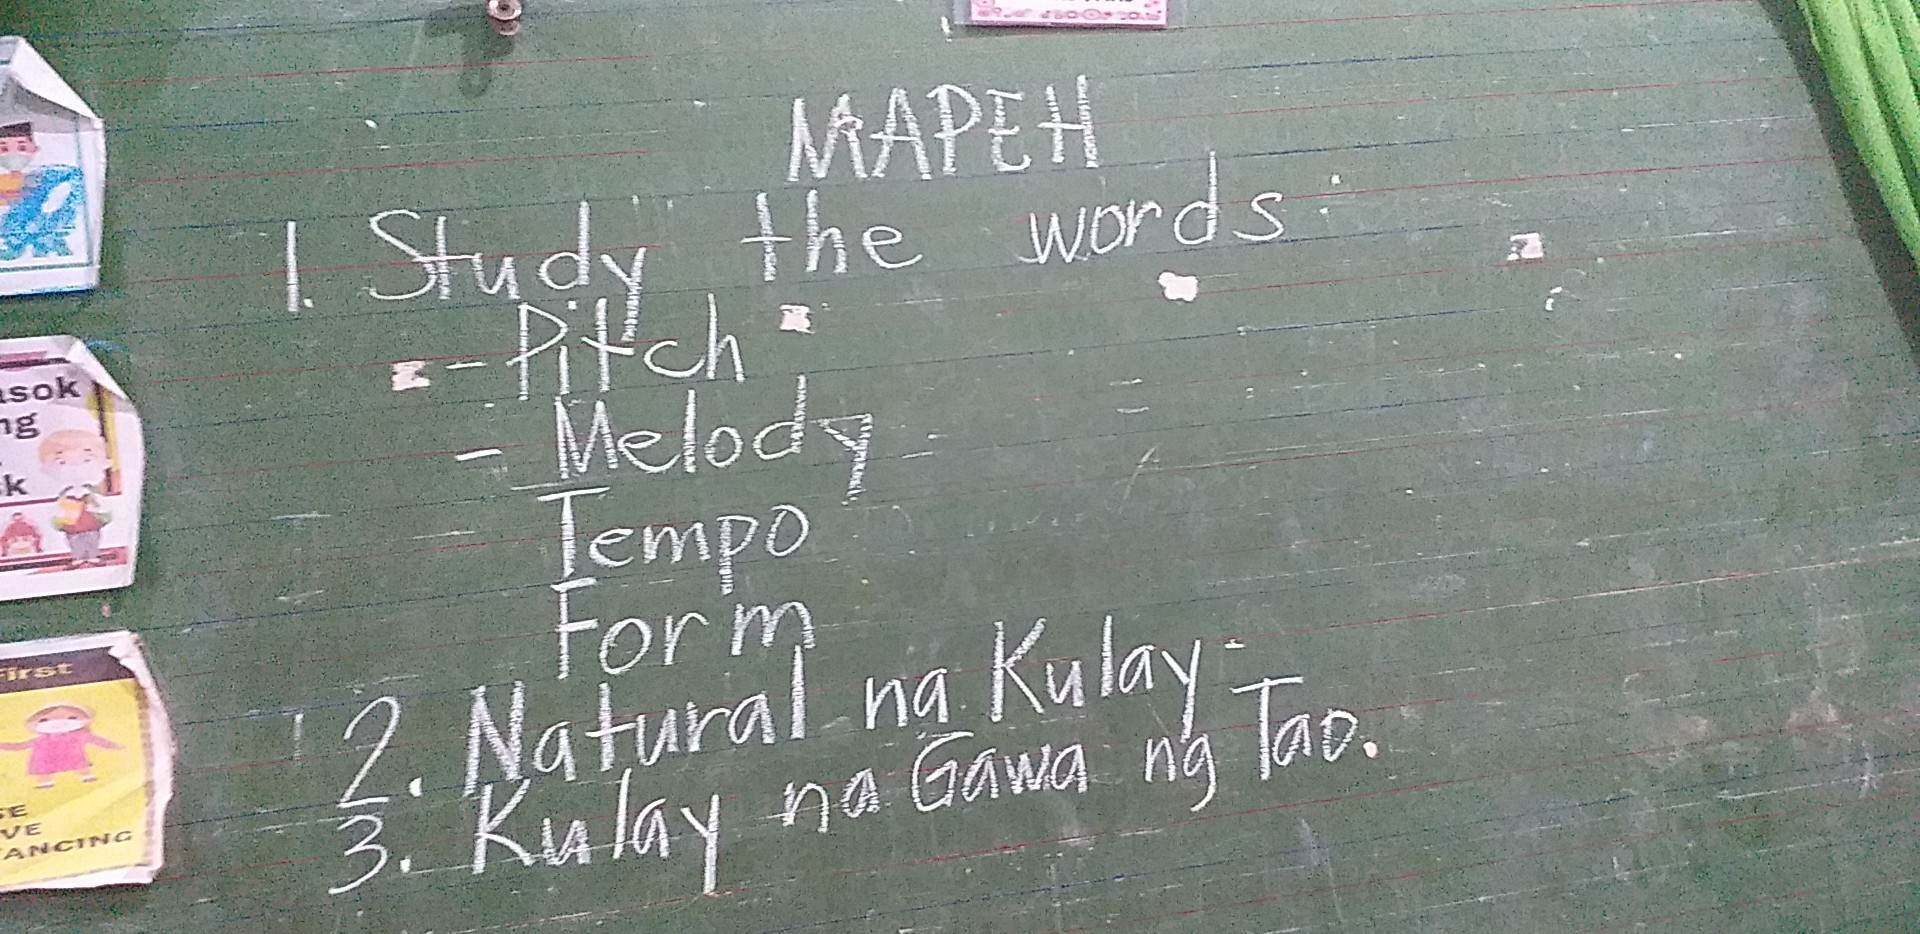 MAPEH
1. Study the words
- Pitch
- Melody
Tempo
Form
2. Natural na Kulay
3. Kulay na Gawa ng Tao.
asok
ng
k
First
SE
VE
ANCING